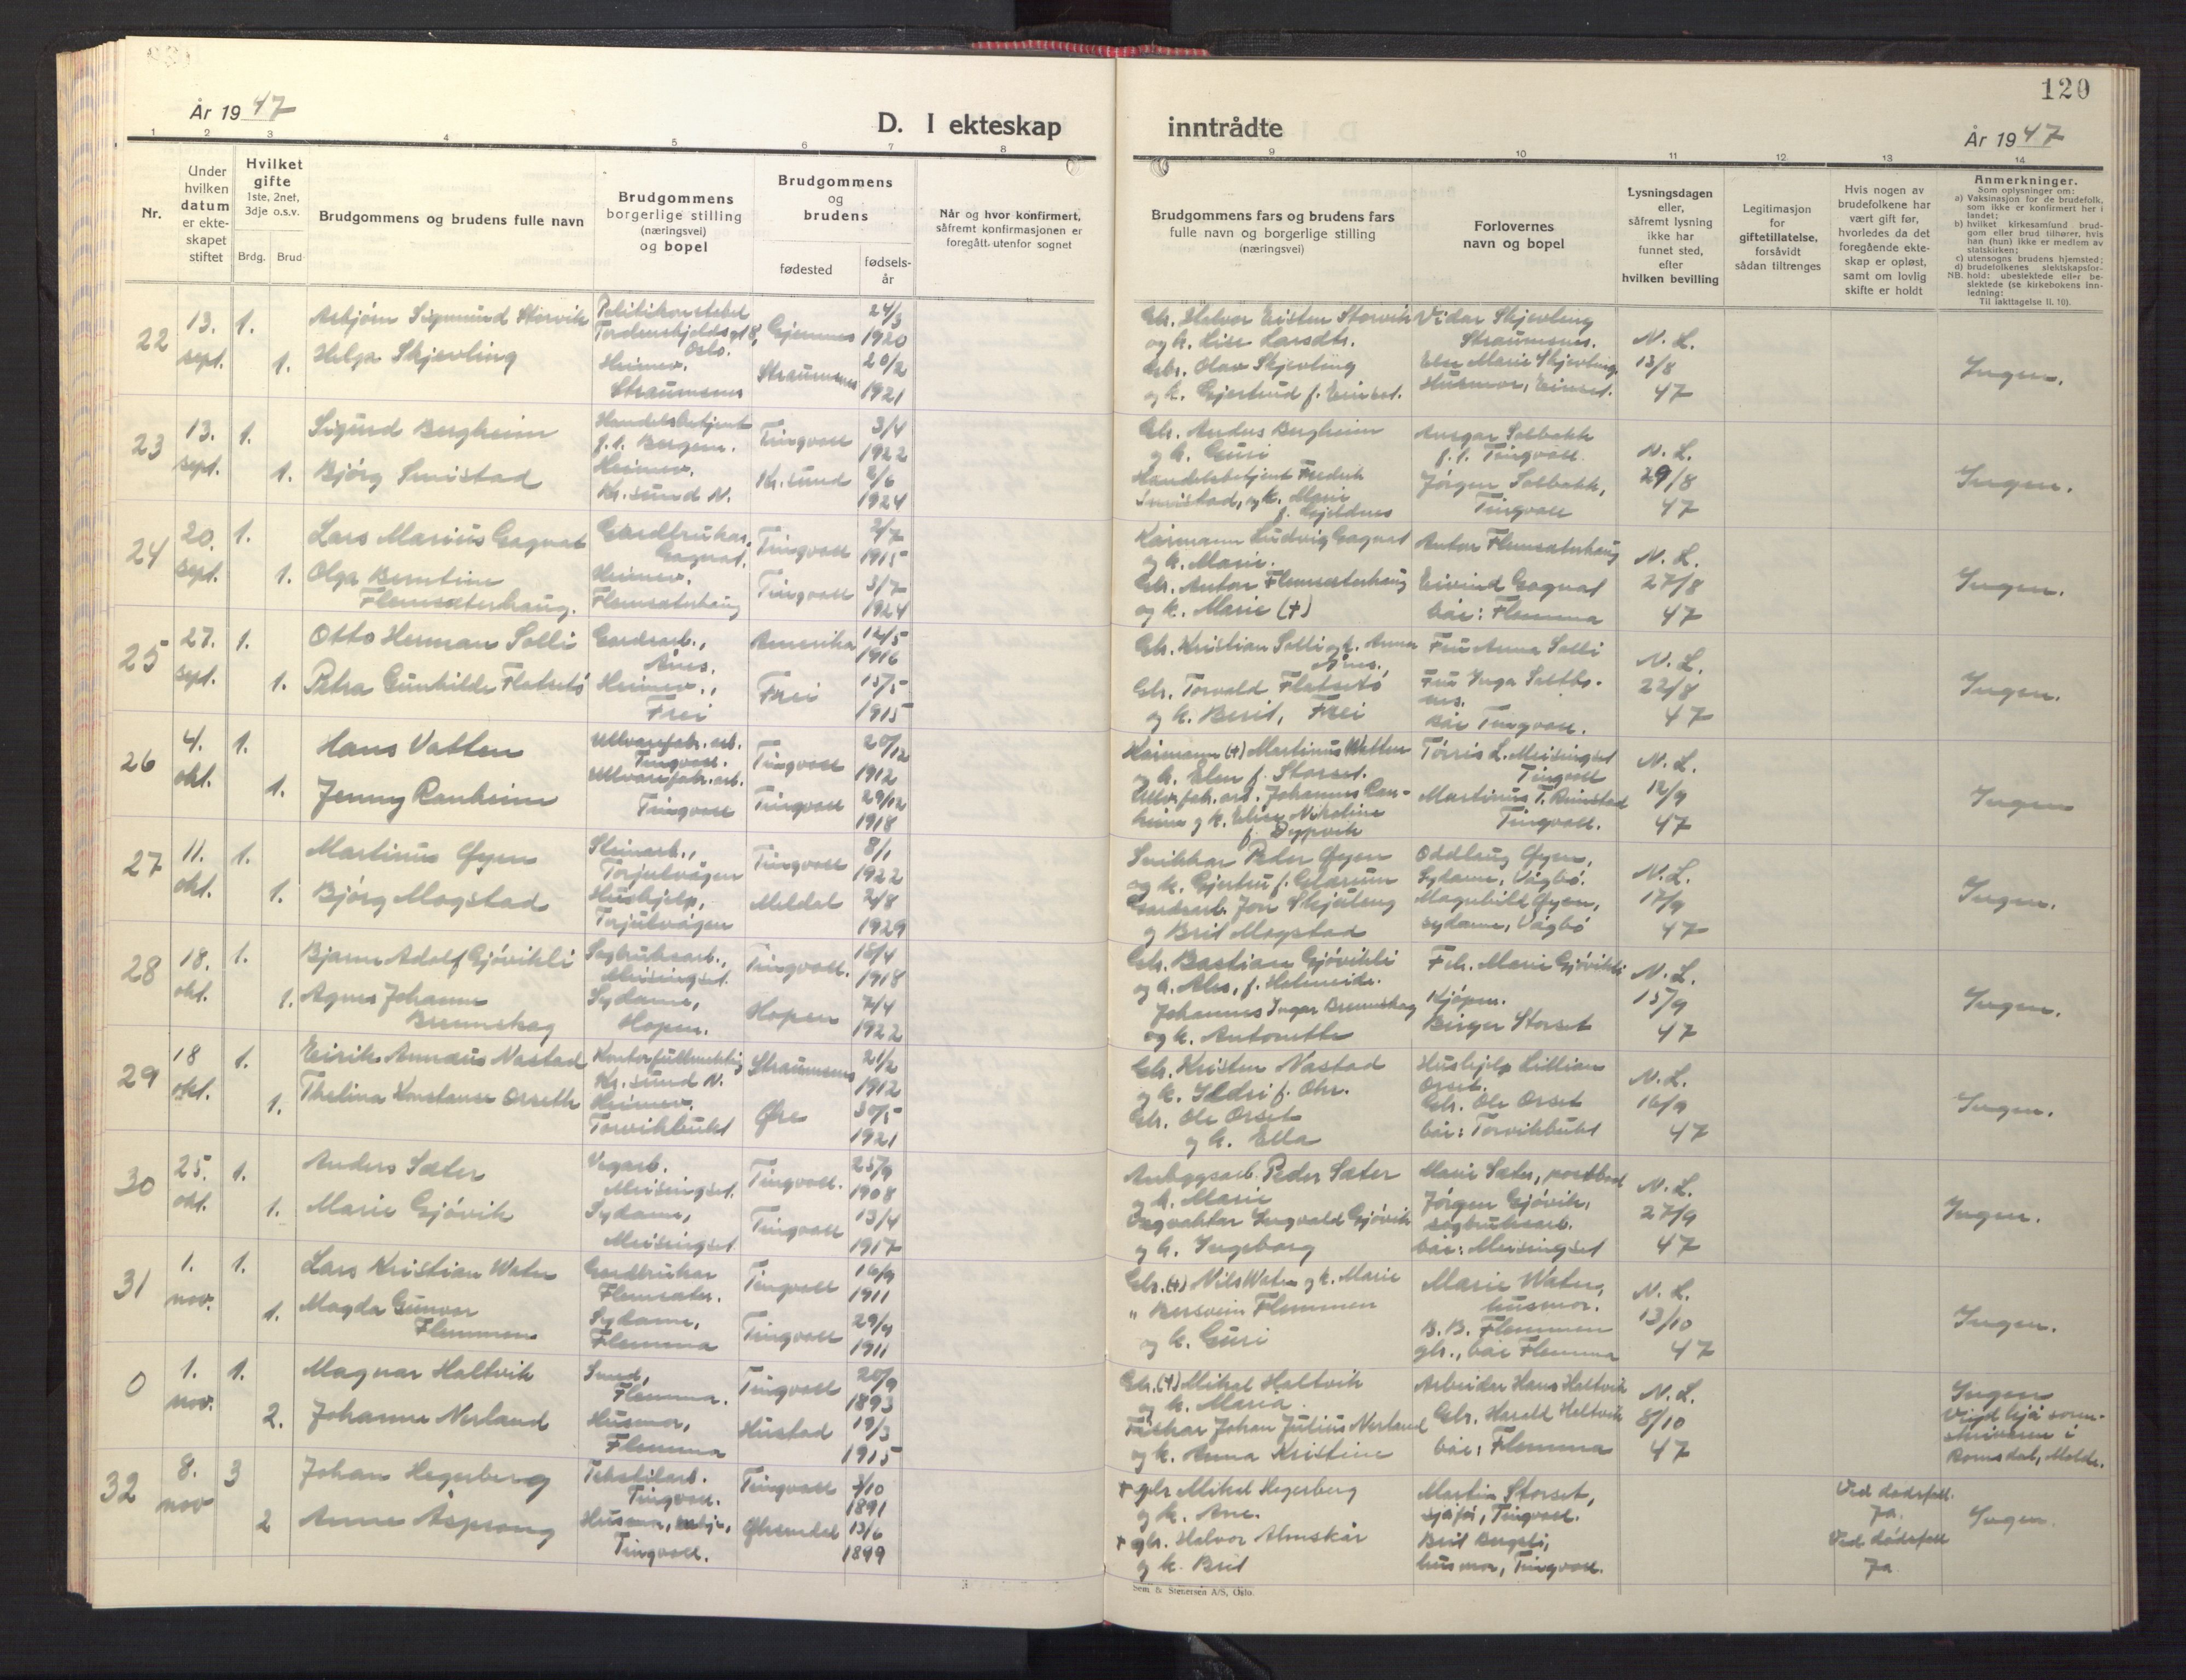 120
År 1947
D. I ekteskap
inntrådte
År 1947
1 2 3 4 5 6 7 8 9 10 11 12 13 14
Nr.
Under
hvilken
datum
er ekte-
skapet
stiftet
Hvilket
gifte
1ste, 2net,
3dje o.s.v.
Brdg. Brud
Brudgommens og brudens fulle navn
Brudgommens
borgerlige stilling
(næringsvei)
og bopel
Brudgommens
og
brudens
fødested
fødsels-
år
Når og hvor konfirmert,
såfremt konfirmasjonen er
foregått utenfor sognet
Brudgommens fars og brudens fars
fulle navn og borgerlige stilling
(næringsvei)
Forlovernes
navn og bopel
Lysningsdagen
eller,
såfremt lysning
ikke har
funnet sted,
efter
hvilken bevilling
Legitimasjon
for
giftetillatelse,
forsåvidt
sådan tiltrenges
Hvis nogen av
brudefolkene har
vært gift før,
hvorledes da det
foregående ekte-
skap er opløst,
samt om lovlig
skifte er holdt
Anmerkninger.
Som oplysninger om:
a) Vaksinasjon for de brudefolk,
som ikke er konfirmert her i
landet;
b) hvilket kirkesamfund brud-
gom eller brud tilhører, hvis
han (hun) ikke er medlem av
statskirken;
c) utensogns brudens hjemsted;
d) brudefolkenes slektskapsfor-
NB. hold: ubeslektede eller be-
slektede (se kirkebokens inn-
ledning:
Til iakttagelse II. 10).
22
13.
sept.
1.
1.
Asbjørn Sigmund Storvik
Helga Skjevling
Politikonstabel
Tordenskjoldsgt 8,
Oslo.
Heimev.
Straumsnes
Gjemnes
Straumsnes
24/3
1920
20/2
1921
Gbr. Halvor Eisten Storvik
og k. Lise Larsdtr.
Gbr. Olav Skjevling
og k. Gjertrud f. Eirset.
Vidar Skjevling
Straumsnes.
Else Marie Skjevling.
Husmor, Eirset.
N. L.
13/8
47
Ingen.
23
13.
sept.
1.
1.
Sigurd Bergheim
Bjørg Smistad
Handelsbetjent
f.t. Bergen.
Heimev.
Kr.sund N.
Tingvoll
Kr.sund
3/4
1922
2/6
1924
Gbr. Anders Bergheim
og k. Guri
Handelsbetjent Fredrik
Smistad, og k. Marie
f. Gjeldnes
Ansgar Solbakk
f.t. Tingvoll
Jørgen Solbakk,
Tingvoll
N. L.
29/8
47
Ingen.
24
20.
sept.
1.
1.
Lars Marius Gagnat
Olga Berntine
Flemsæterhaug.
Gardbrukar,
Gagnat.
Heimev.
Flemsæterhaug
Tingvoll
Tingvoll
2/7
1915
3/7
1924
Kårmann Ludvig Gagnat
og k. Marie.
Gbr. Anton Flemsæterhaug
og k. Marie (+)
Anton Flemsæterhaug
Eivind Gagnat
båe: Flemma
N. L.
27/8
47
Ingen.
25
27.
sept.
1.
1.
Otto Herman Solli
Petra Gunhilde Flatsetø
Gardsarb.,
Ånes.
Heimev.,
Frei
Amerika
Frei
12/5
1916
15/5
1915
Gbr. Kristian Solli og k. Anna
Ånes.
Gbr. Torvald Flatsetø
og k. Berit, Frei
Fru Anna Solli
Fru Inga Saltbu-
nes.
Båe Tingvoll.
N. L.
22/8
47
Ingen.
26
4.
okt.
1.
1.
Hans Vatten
Jenny Ranheim
Ullvarefabr. arb.
Tingvoll.
Ullvarefabr. arb.
Tingvoll
Tingvoll
Tingvoll
20/12
1912
29/12
1918
Kårmann (+) Martinus Watten
og k. Elen f. Storset.
Ullv. fab. arb. Johannes Ran-
heim og k. Elise Nikoline
f. Dypvik
Tørris L. Meisingset
Tingvoll
Martinus T. Rimstad
Tingvoll.
N. L.
12/9
47
Ingen
27
11.
okt.
1.
1.
Martinus Øyen
Bjørg Mogstad
Steinarb.,
Torjulvågen
Hushjelp,
Torjulvågen
Tingvoll
Meldal
8/1
1922
2/8
1929
Snikkar Peder Øyen
og k. Gjertru f. Glærum
Gardsarb. Jon Skjølsvang
og Brit Mogstad
Oddlaug Øyen,
Sydame, Vågbø.
Magnhild Øyen,
sydame, Vågbø
N. L.
17/9
47
Ingen.
28
18.
okt.
1.
1.
Bjarne Adolf Gjøvikli
Agnes Johanne
Brennskag
Sagbruksarb.,
Meisingset.
Sydame,
Hopen.
Tingvoll.
Hopen
18/4
1918
7/4
1922
Gbr. Bastian Gjøvikli
og k. Ales, f. Holmeide.
Johannes Ingar Brennskag
og k. Antonette
Frk. Marie Gjøvikli
Kjøpm.
Birger Storset
N. L.
15/9
47
Ingen.
29
18
okt.
1.
1.
Eirik Annæus Nastad
Thelina Konstanse Orseth
Kontorfullmektig
Kr. sund N.
Heimev.
Torvikbukt
Straumsnes
Øre
21/2
1912
30/5
1921
Gbr. Kristen Nastad
og k. Ildri f. Ohr.
Gbr. Ole Orset
og k. Ella
Hushjelp Lillian
Orset.
Gbr. Ole Orset
båe: Torvikbukt
N. L.
16/9
47
Ingen.
30
25.
okt.
1.
1.
Anders Sæter
Marie Gjøvik
Vegarb.
Meisingset.
Sydame,
Meisingset
Tingvoll.
Tingvoll
25/9
1908
13/4
1917
Anleggsarb. Peder Sæter
og k. Marie
Vegvaktar Ingvald Gjøvik
og k. Ingeborg
Marie Sæter, postbod
Jørgen Gjøvik,
sagbruksarb.
båe: Meisingset
N. L.
27/9
47
Ingen.
31
1.
nov.
1.
1.
Lars Kristian Waten
Magda Gunvor
Flemmen
Gardbrukar
Flemsæter.
Sydame,
Flemma
Tingvoll
Tingvoll
16/9
1911
29/4
1911
Gbr. (+) Nils Waten og k. Marie
" Bersvein Flemmen
og k. Guri
Marie Waten,
husmor.
B. B. Flemmen
gbr., båe Flemma
N. L.
13/10
47
Ingen.
0
1.
nov.
1.
2.
Magnar Haltvik
Johanne Nerland
Smed,
Flemma.
Husmor,
Flemma
Tingvoll
Hustad
20/9
1893
19/3
1915
Gbr. (+) Mikal Haltvik
og k. Maria.
Fiskar Johan Julius Nerland
og k. Anna Kristine
Arbeidar Hans Haltvik
Gbr. Harald Haltvik
båe: Flemma
N. L.
8/10
47
Ingen
Vigd hjå soren-
skrivaren i
Romsdal, Molde.
32
8.
nov
3
2
Johan Hegerberg
Anne Åsprong
Tekstilarb.
Tingvoll.
Husmor,
Tingvoll.
Tingvoll
Øksendal
3/10
1891
13/6
1899
+ gbr Mikal Hegerberg
og k. Ane.
+ gbr. Halvor Almskår
og k. Brit
Martin Storset,
sjåfør, Tingvoll.
Brit Bergsli,
husmor, Tingvoll.
Ved dødsfall.
Ja.
Ved dødsfall
Ja
Ingen.
Sem & Stenersen A/S, Oslo.